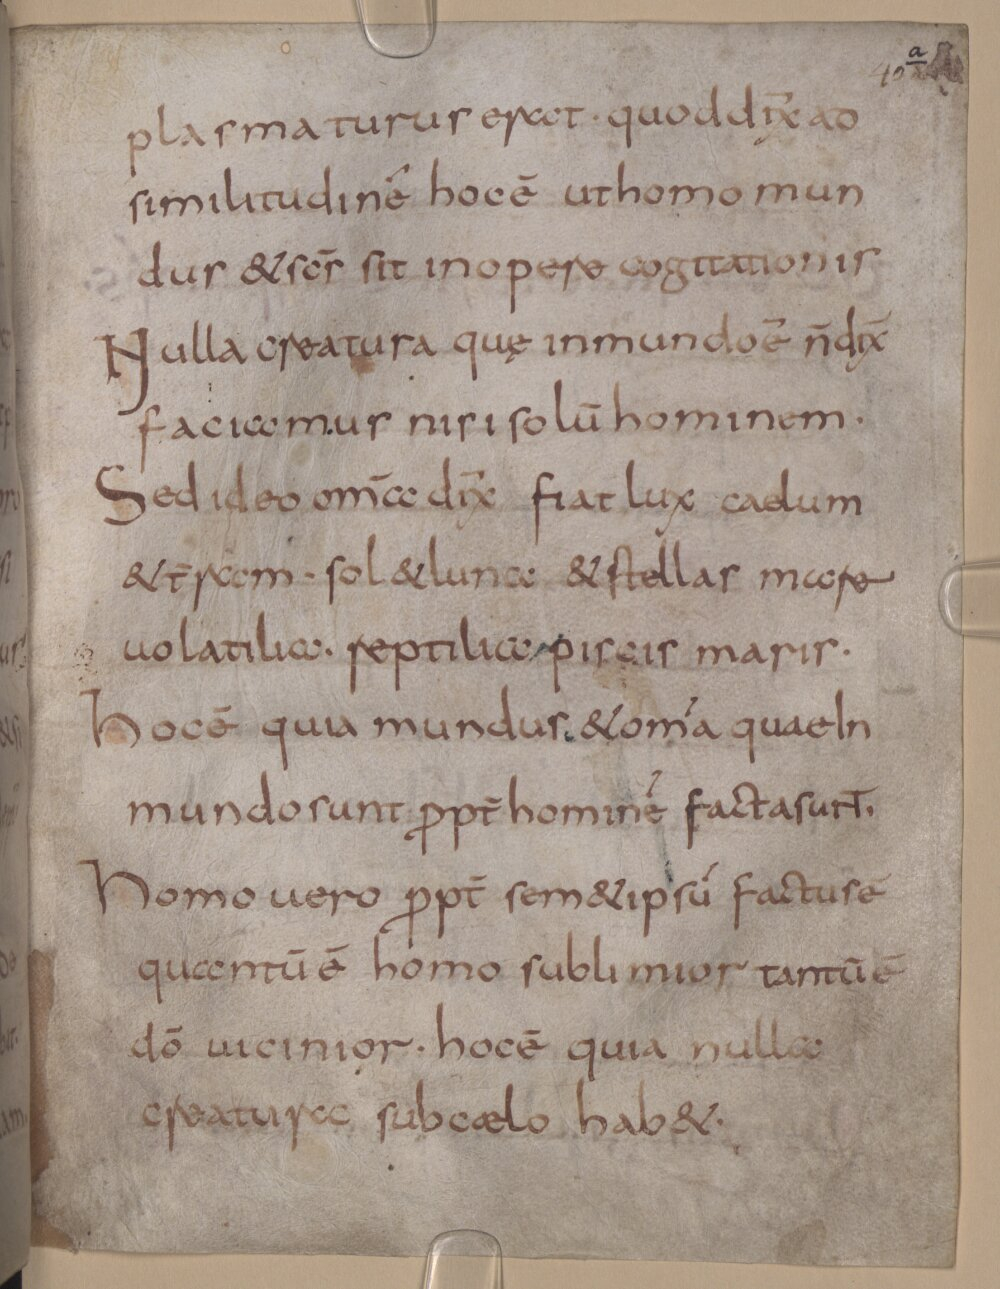 40a
plasmaturus erat · quod dix̄ ad
similitudinē hoc ē ut homo mun
dus & sc̄s sit in opere cogitationis
Nulla creatura quę in mundo ē n̄ dix̄
faciamus nisi solū hominem ·
Sed ideo om̄a dix̄ fiat lux caelum
& t̄ram · sol & luna & stellas mare
uolatilia · reptilia piscis maris ·
hoc ē quia mundus · & om̄a quae In
mundo sunt ꝓpt̄ hominē facta sunt̄ ·
homo uero ꝓpt̄ sem&ipsū factus ē
quantū ē homo sublimior tantū ē
dō uicinior · hoc ē quia nulla
creatura sub caelo hab& ·